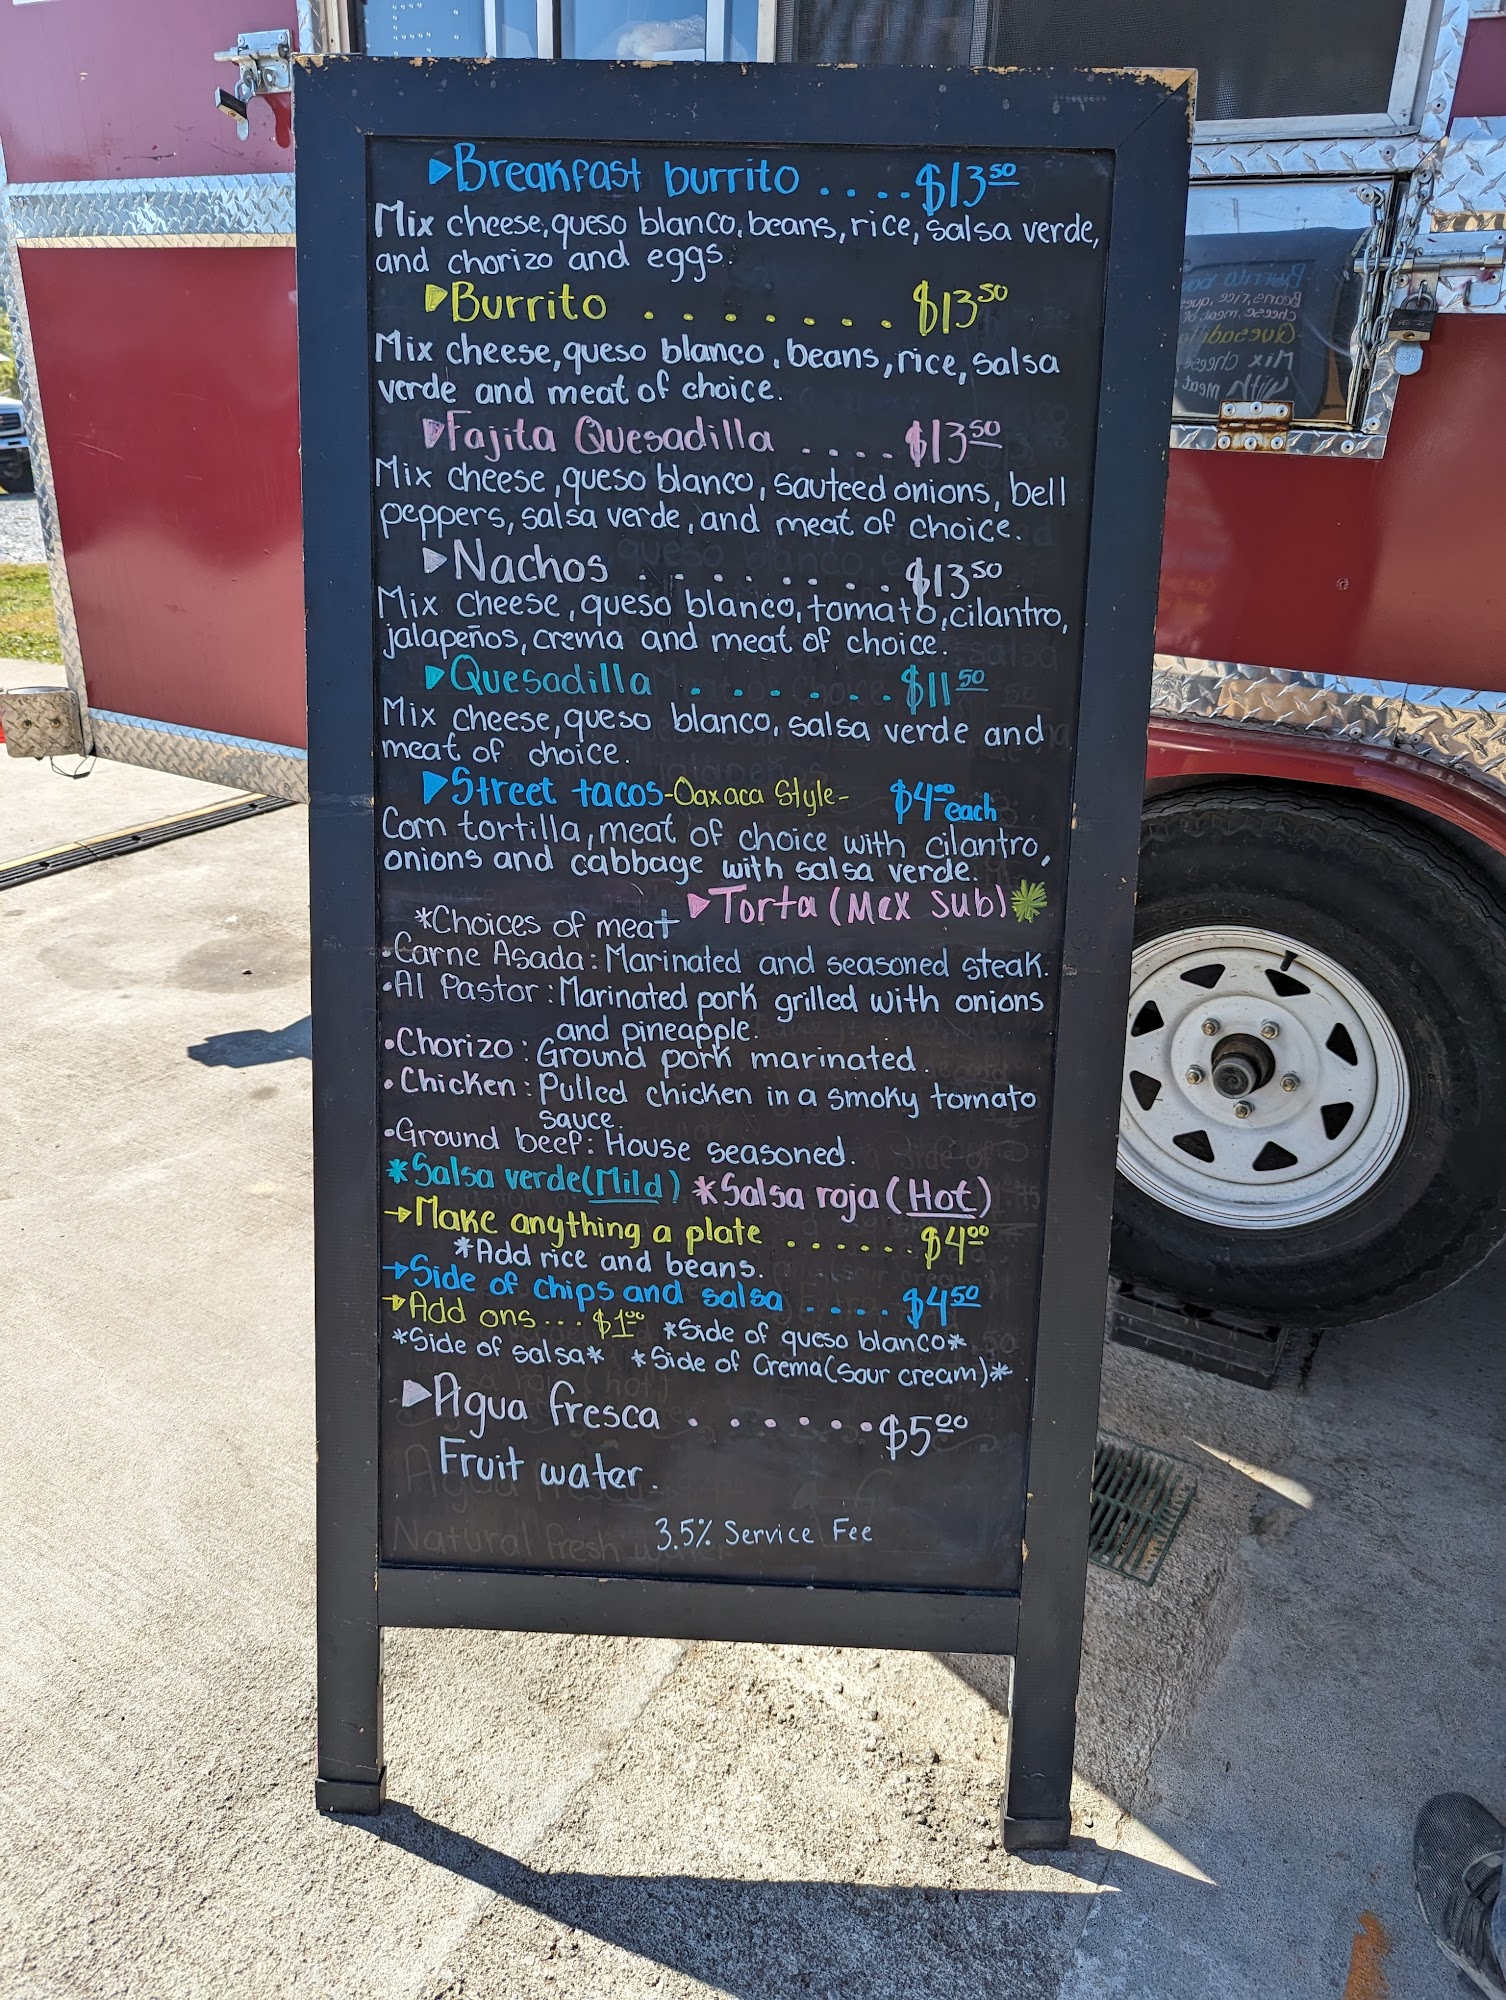 ▶Breakfast burrito ....$13.50
Mix cheese, queso blanco, beans, rice, salsa verde,
and chorizo and eggs.
▶Burrito .......$13.50
Mix cheese, queso blanco, beans, rice, salsa
verde and meat of choice.
▶Fajita Quesadilla ....$13.50
Mix cheese, queso blanco, sauteed onions, bell
peppers, salsa verde, and meat of choice.
▶Nachos ........$13.50
Mix cheese, queso blanco, tomato, cilantro,
jalapeños, crema and meat of choice.
▶Quesadilla ......$11.50
Mix cheese, queso blanco, salsa verde and
meat of choice.
▶Street tacos-Oaxaca Style- $4.00 each
Corn tortilla, meat of choice with cilantro,
onions and cabbage with salsa verde.
▶Torta (Mex Sub)*
*Choices of meat
•Carne Asada: Marinated and seasoned steak.
•Al Pastor: Marinated pork grilled with onions
and pineapple.
•Chorizo: Ground pork marinated.
•Chicken: Pulled chicken in a smoky tomato
sauce.
•Ground beef: House seasoned.
*Salsa verde (Mild) *Salsa roja (Hot)
→Make anything a plate ......$4.00
*Add rice and beans.
→Side of chips and salsa ....$4.50
→Add ons...$1.00 *Side of queso blanco*
*Side of salsa* *Side of Crema (sour cream)*
▶Agua fresca ......$5.00
Fruit water.
3.5% Service Fee